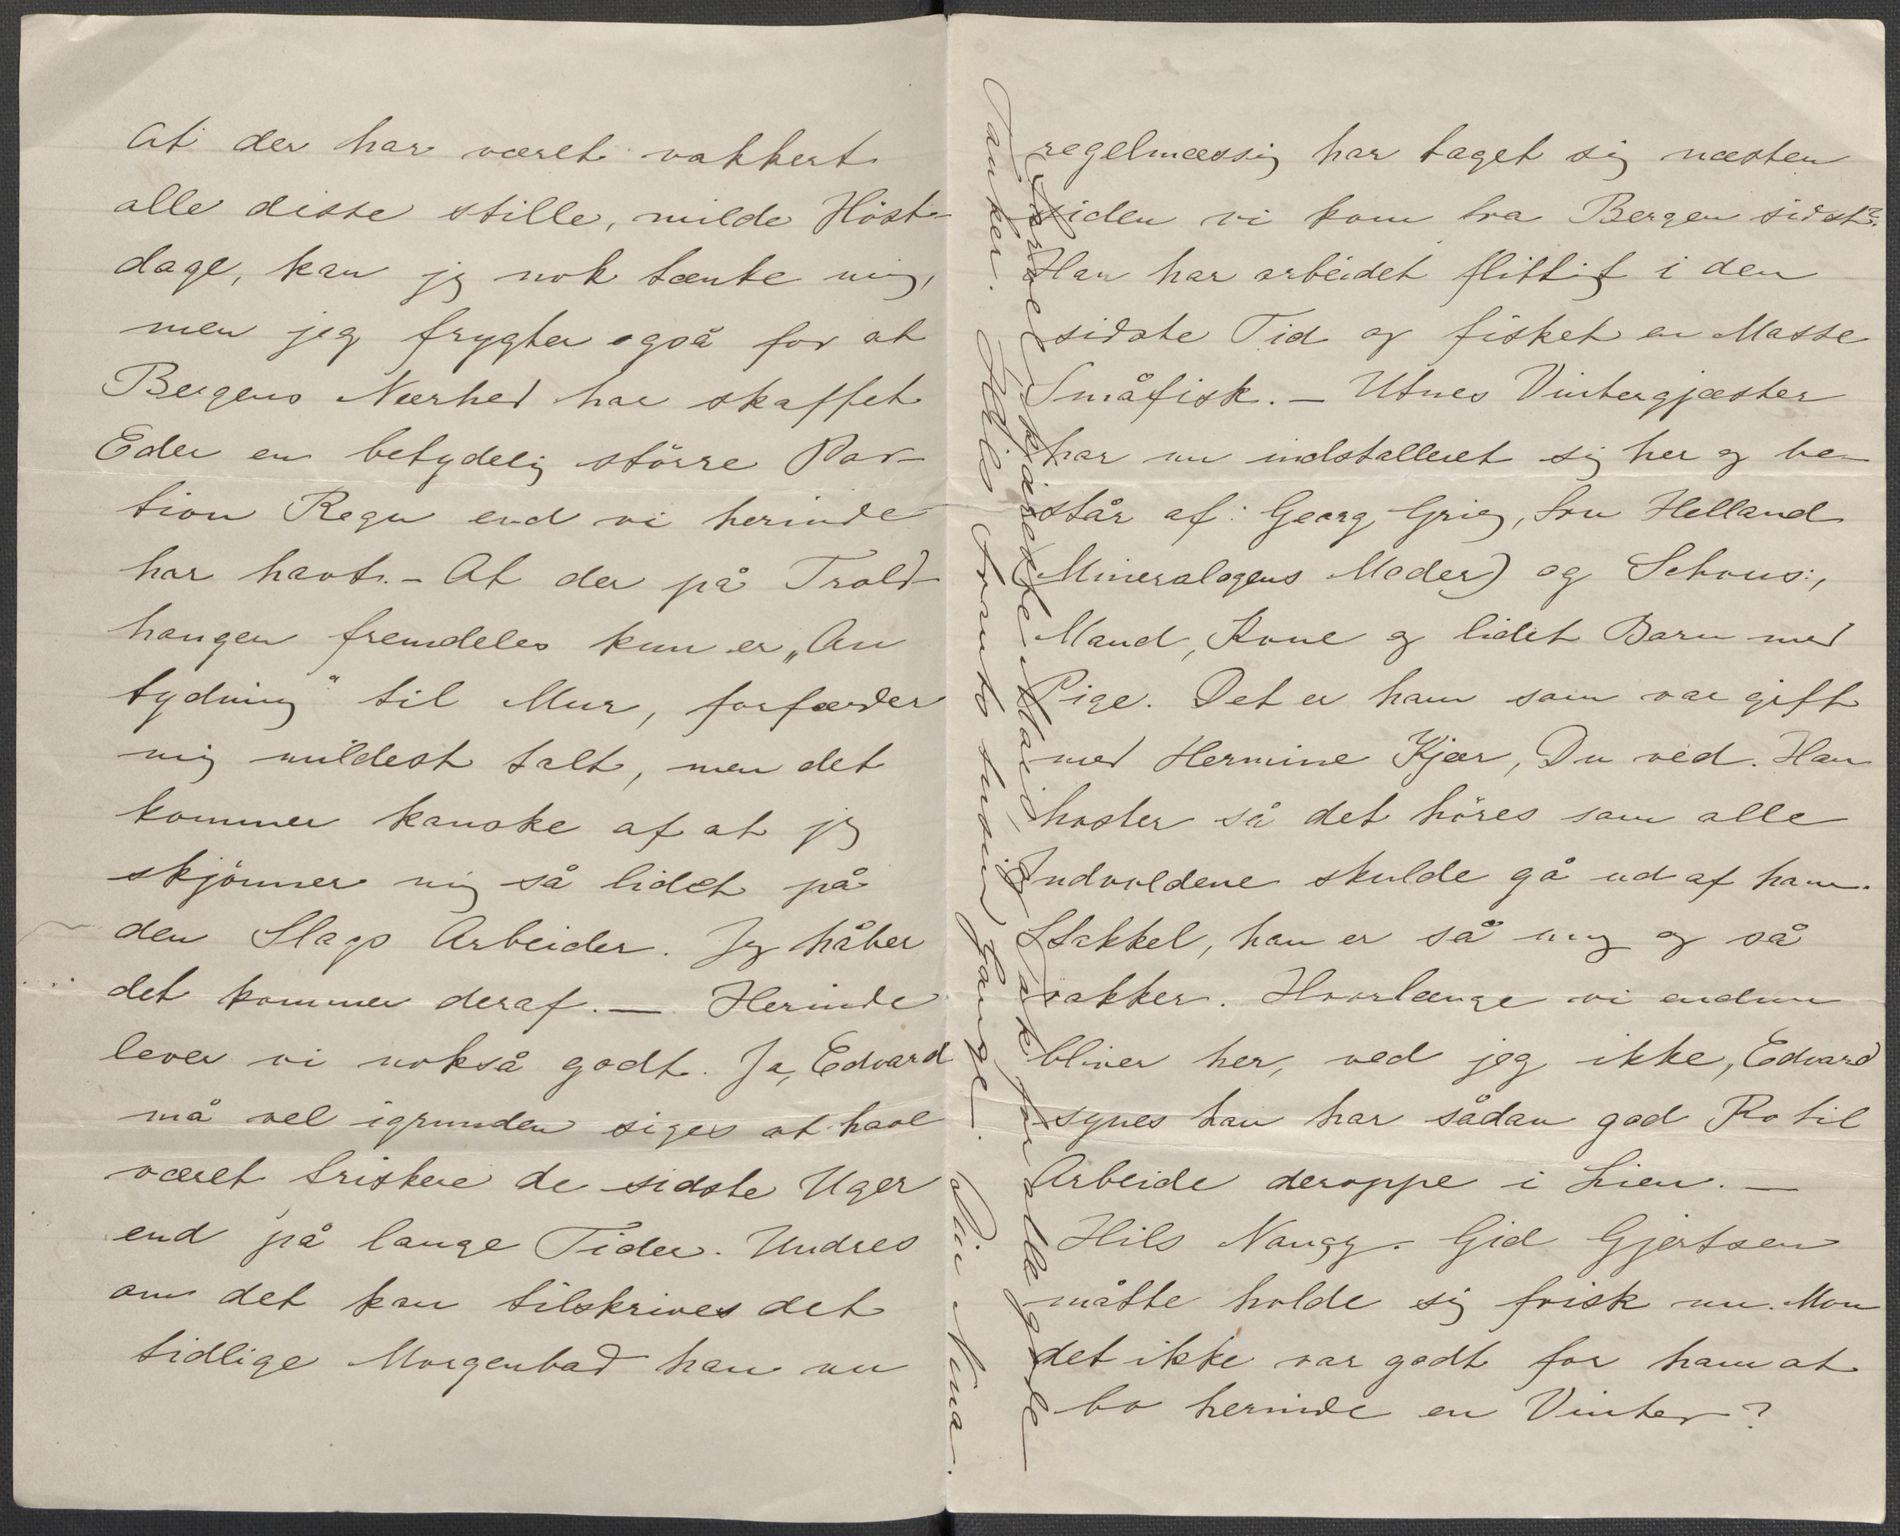 At der har været vakkert
alle disse stille, milde Höst-
dage, kan jeg nok tænke mig,
men jeg frygter også for at
Bergens Nærhed har skaffet
Eder en betydelig större Por-
tion Regn end vi herinde
har havt. - At der på Trold-
haugen fremdeles kun er „An
tydning" til Mur, forfærder
mig mildest talt, men det
kommer kanske af at jeg
skjönner mig så lidet på
den Slags Arbeider. Jeg håber
det kommer deraf. — Herinde
lever vi nokså godt. Ja, Edvard
må vel igrunden siges at have
været friskere de sidste Uger
end på lange Tider. Undres
om det kan tilskrives det
tidlige Morgenbad han nu
regelmæssig har taget sig næsten
siden vi kom fra Bergen sidst?
Han har arbeidet flittig i den
sidste Tid og fisket en Masse
Småfisk. — Utnes Vintergjæster
har nu indstalleret sig her og be-
står af: Georg Grieg, Fru Helland
Mineralogens Moder) og Schous:,
Mand, Kone og lidet Barn med
Pige. Det er ham som var gift
med Hermine Kjær, Du ved. Han
hoster så det höres som alle
Indvoldene skulde gå ud af ham.
Stakkel, han er så ung og så
vakker. Hvorlænge vi endnu
bliver her, ved jeg ikke, Edvard
synes han har sådan god Ro til
Arbeide deroppe i Lien. —
Hils Nanny. Gid Gjertsen
måtte holde sig frisk nu. Mon
det ikke var godt for ham at
bo herinde en Vinter?
Farvel, kjæreste Marie, og Tak for alle gode
Tanker. Hils Frants tusind Gange. Din Nina.